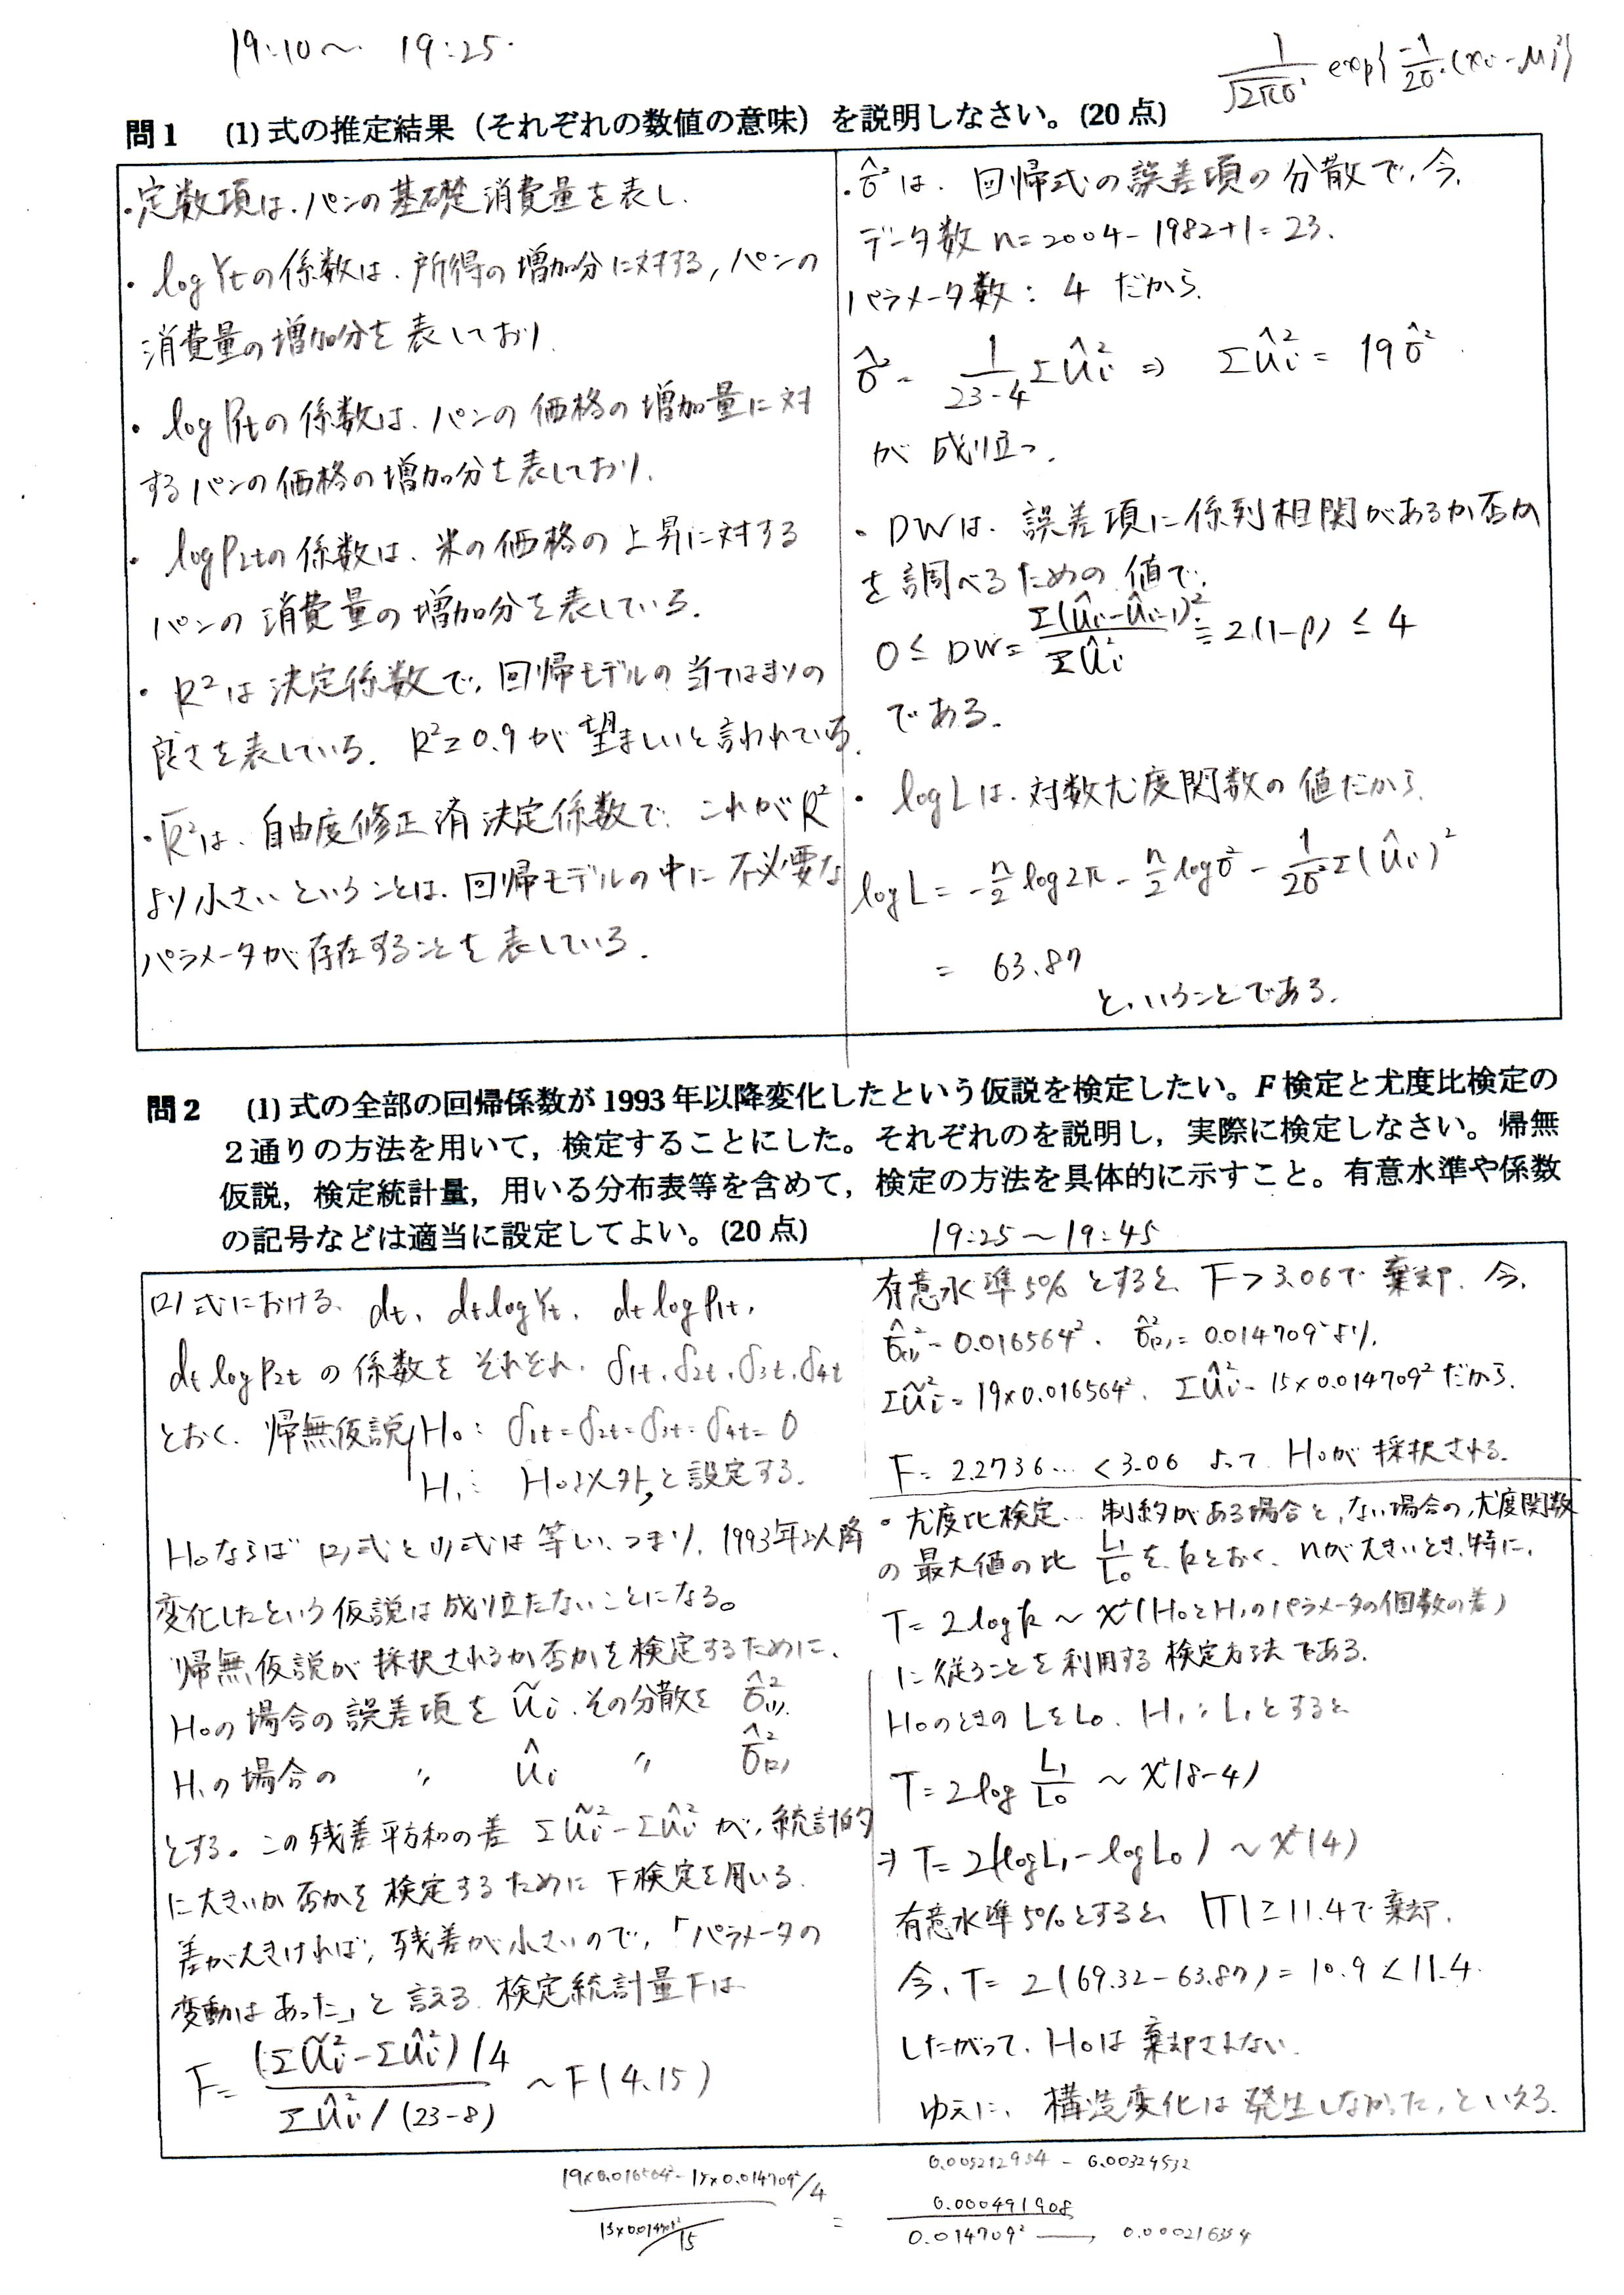 19:10〜 19:25.
1/√2πσ² exp{-1/2σ²(xi-μ)²}
問1 (1)式の推定結果（それぞれの数値の意味）を説明しなさい。(20点)
・定数項は、パンの基礎消費量を表し、
・log Ytの係数は、所得の増加分に対する、パンの
消費量の増加分を表しており、
・log P1tの係数は、パンの価格の増加量に対
するパンの価格の増加分を表しており、
・log P2tの係数は、米の価格の上昇に対する
パンの消費量の増加分を表している。
・R²は決定係数で、回帰モデルの当てはまりの
良さを表している。R²≥0.9が望ましいと言われている。
・R̄²は、自由度修正済決定係数で、これがR²
より小さいということは、回帰モデルの中に不必要な
パラメータが存在することを表している。
・σ̂²は、回帰式の誤差項の分散で、今、
データ数 n=2004-1982+1=23、
パラメータ数：4 だから、
σ̂² = 1/(23-4) Σûi² ⇒ Σûi² = 19σ̂²
が成り立つ。
・DWは、誤差項に係列相関があるか否か
を調べるための値で、
0≤ DW= Σ(ûi-ûi-1)²/Σûi² ≒ 2(1-ρ) ≤ 4
である。
・log Lは、対数尤度関数の値だから、
log L = -n/2 log2π - n/2 logσ² - 1/2σ² Σ(ûi)²
= 63.87
ということである。
問2 (1)式の全部の回帰係数が1993年以降変化したという仮説を検定したい。F検定と尤度比検定の
2通りの方法を用いて，検定することにした。それぞれのを説明し，実際に検定しなさい。帰無
仮説，検定統計量，用いる分布表等を含めて，検定の方法を具体的に示すこと。有意水準や係数
の記号などは適当に設定してよい。(20点)
19:25〜19:45
(2)式における、dt、dt log Yt、dt log P1t、
dt log P2t の係数をそれぞれ、δ1t、δ2t、δ3t、δ4t
とおく、帰無仮説 H0： δ1t=δ2t=δ3t=δ4t=0
H1： H0以外、と設定する。
H0ならば (2)式と(1)式は等しい、つまり、1993年以降
変化したという仮説は成り立たないことになる。
帰無仮説が採択されるか否かを検定するために、
H0の場合の誤差項を ũi、その分散を σ̂(1)²、
H1の場合の 〃 ûi 〃 σ̂(2)²
とする。この残差平方和の差 Σũi²-Σûi² が、統計的
に大きいか否かを検定するためにF検定を用いる。
差が大きければ、残差が小さいので、「パラメータの
変動はあった」と言える。検定統計量Fは
F= (Σũi²-Σûi²)/4 / Σûi²/(23-8) ~ F(4,15)
有意水準5%とすると、F>3.06で棄却。今、
σ̂(1)²=0.016564²、σ̂(2)²=0.014709²より、
Σũi²=19×0.016564²、Σûi²=15×0.014709²だから、
F=2.2736… <3.06 よって、H0が採択される。
・尤度比検定… 制約がある場合と、ない場合の、尤度関数
の最大値の比 L1/L0 を、kとおく、nが大きいとき、特に、
T= 2log k ~ χ²(H0とH1のパラメータの個数の差)
に従うことを利用する検定方法である。
H0のときのLをL0、H1：L1とすると
T= 2log L1/L0 ~ χ²(8-4)
⇒ T= 2(logL1-logL0) ~ χ²(4)
有意水準5%とすると、|T|≥11.4で棄却。
今、T= 2(69.32-63.87)=10.9<11.4.
したがって、H0は棄却されない。
ゆえに、構造変化は発生しなかった、といえる。
19×0.016564²-15×0.014709²/4 / 15×0.014709²/15 = 0.000491908 / 0.014709² → 0.000216354
0.005212954 - 0.00324532